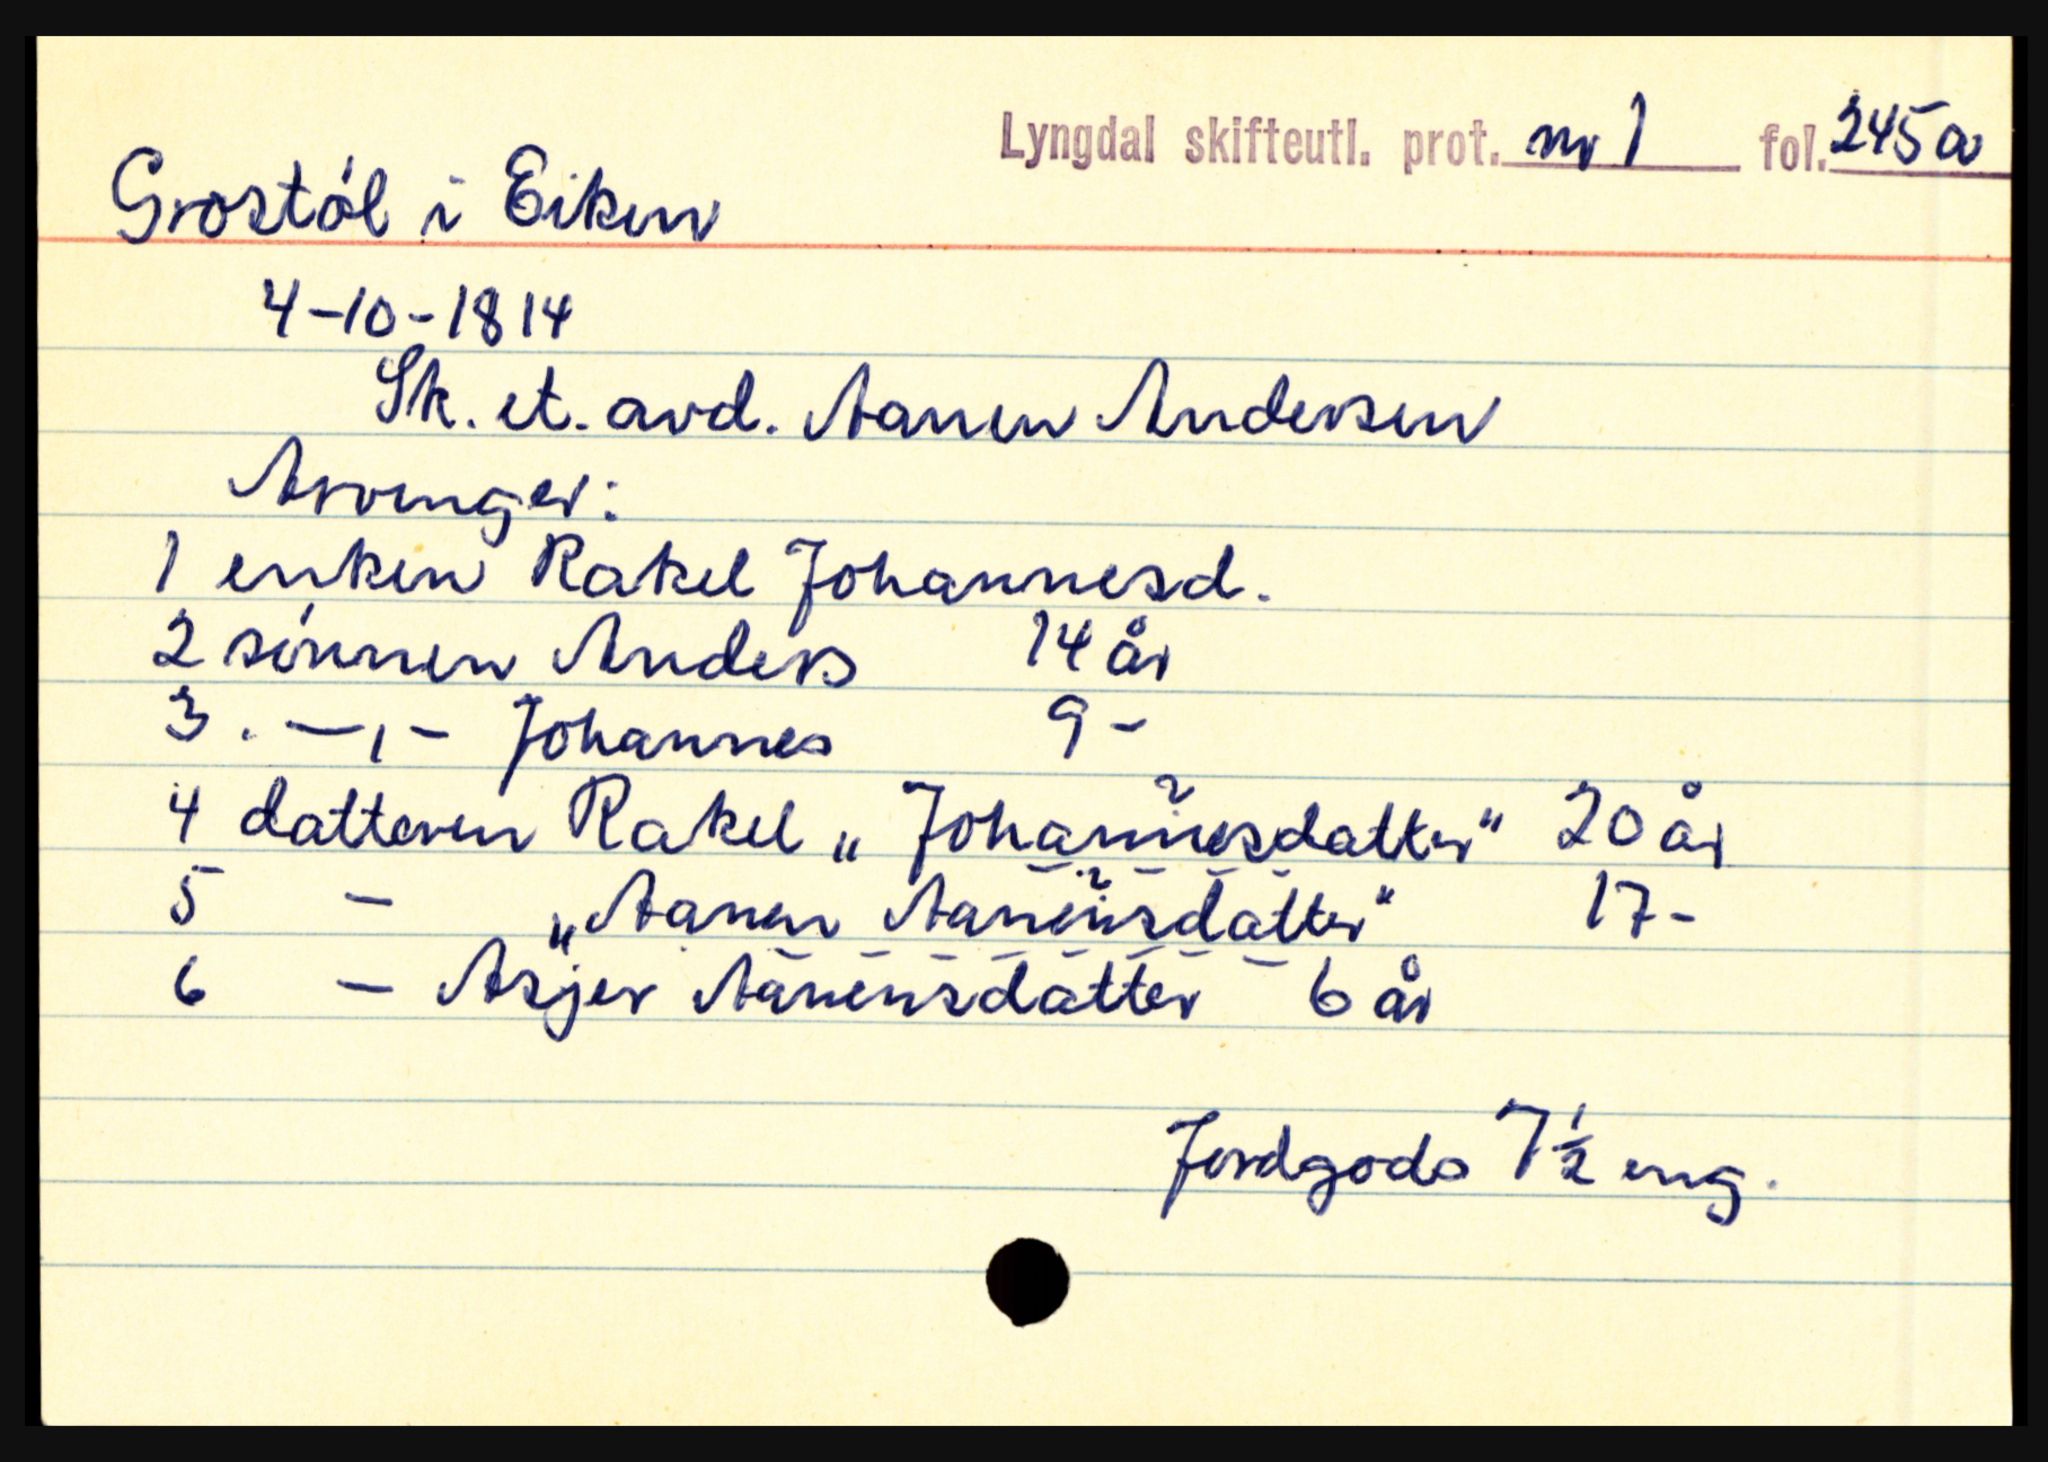 Lyngdal skifteutl. prot. nr 1 fol. 245a
Grostól i Eiken
4-10-1814
Sk. et. avd. Aanen Andersen
Arvinger:
1 enken Rakel Johannesd.
2 sónnen Anders 14 år
3. —,,— Johannes 9 -
4 datteren Rakel „Johannesdatter“ ? 20 år
5 — „Aanen Aanensdatter“ ? 17 -
6 — Asjer Aanensdatter 6 år
Jordgods 7½ eng.